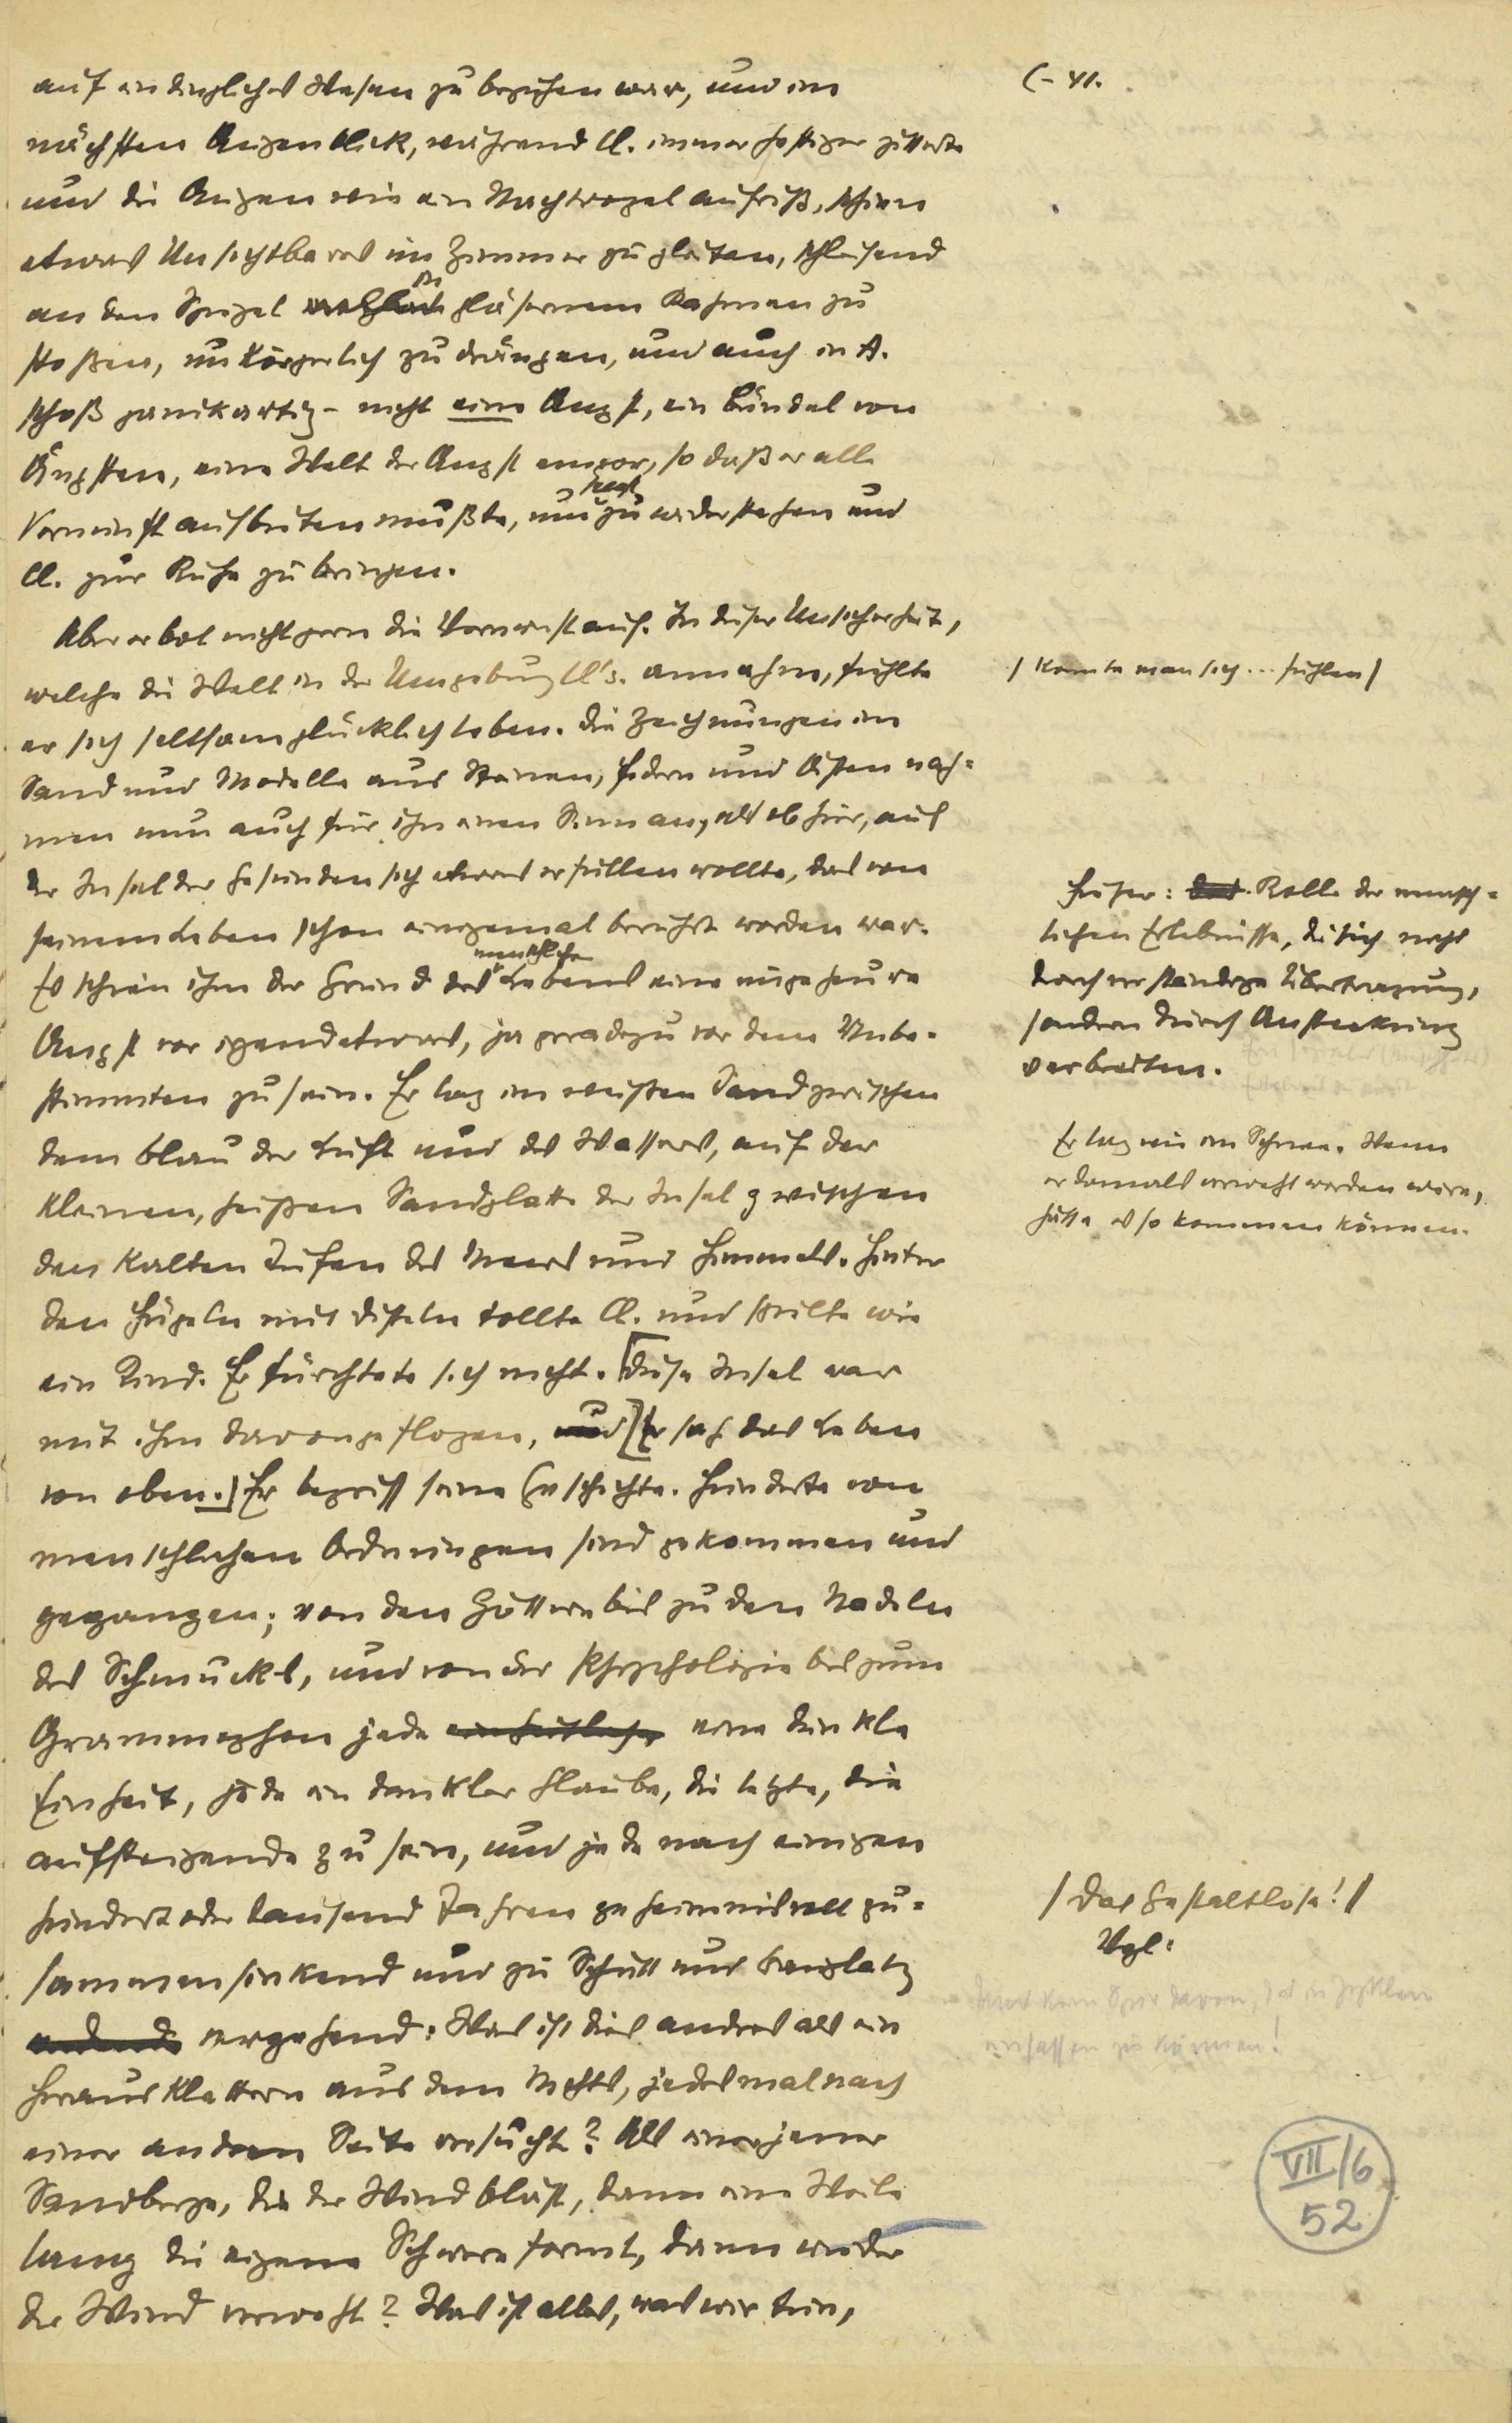 auf ein dingliches Wesen zu beziehen war, und im
nächsten Augenblick, während Cl. immer heftiger zitterte
und die Augen wie ein Nachtvogel aufriß, schien
etwas Unsichtbares im Zimmer zu gleiten, schleifend
an den Spiegel gläsernem Rahmen zu
stoßen, unkörperlich zu drängen, und auch in A.
schoß panikartig – nicht eine Angst, ein Bündel von
Ängsten, eine Welt der Angst empor, so daß er alle
Vernunft aufbieten mußte, um zu widerstehen und
Cl. zur Ruhe zu bringen.
Aber er bot nicht gern die Vernunft auf. In dieser Unsicherheit,
welche die Welt in der Umgebung Cl's. annahm, fühlte
er sich seltsam glücklich leben. Die Zeichnungen im
Sand und Modelle aus Steinen, Federn und Ästen nah=
men nun auch für ihn einen Sinn an, als ob hier, auf
der Insel der Gesunden sich etwas erfüllen wollte, das von
seinem Leben schon einigemal berührt worden war.
menschlichen
Es schien ihm der Grund des Lebens eine ungeheure
Angst vor irgendetwas, ja geradezu vor dem Unbe-
stimmten zu sein. Er lag im weißen Sand zwischen
dem Blau der Luft und des Wassers, auf der
kleinen, heißen Sandplatte der Insel zwischen
den kalten Tiefen des Meers und Himmels. Hinter
den Hügeln mit Disteln tollte Cl. und spielte wie
ein Kind. Er fürchtete sich nicht. [Diese Insel war
mit ihm davongeflogen, und] [Er sah das Leben
von oben.] Er begriff seine Geschichte. Hunderte von
menschlichen Ordnungen sind gekommen und
gegangen; von den Göttern bis zu den Nadeln
des Schmucks, und von der Psychologie bis zum
Grammophon jede eine dunkle
Einheit, jede ein dunkler Glaube, die letzte, die
aufsteigende zu sein, und jede nach einigen
hundert oder tausend Jahren geheimnisvoll zu=
sammensinkend und zu Schutt und Bauplatz
vergehend: Was ist dies andres als ein
Herausklettern aus dem Nichts, jedesmal nach
einer andern Seite versucht? Als einer jener
Sandberge, die der Wind bläst, dann eine Weile
lang die eigene Schwere formt, dann wieder
der Wind verweht? Was ist alles, was wir tun,
(– 41.
/ Konnte man sich ... fühlen /
Früher: Rolle der mensch=
lichen Erlebnisse, die sich nicht
durch verständige Übertragung,
sondern durch Ansteckung
verbreiten.
Er lag wie im Schnee. Wenn
er damals verweht worden wäre,
hätte es so kommen können.
/ Das Gestaltlose! /
Vgl:
VII/6
52